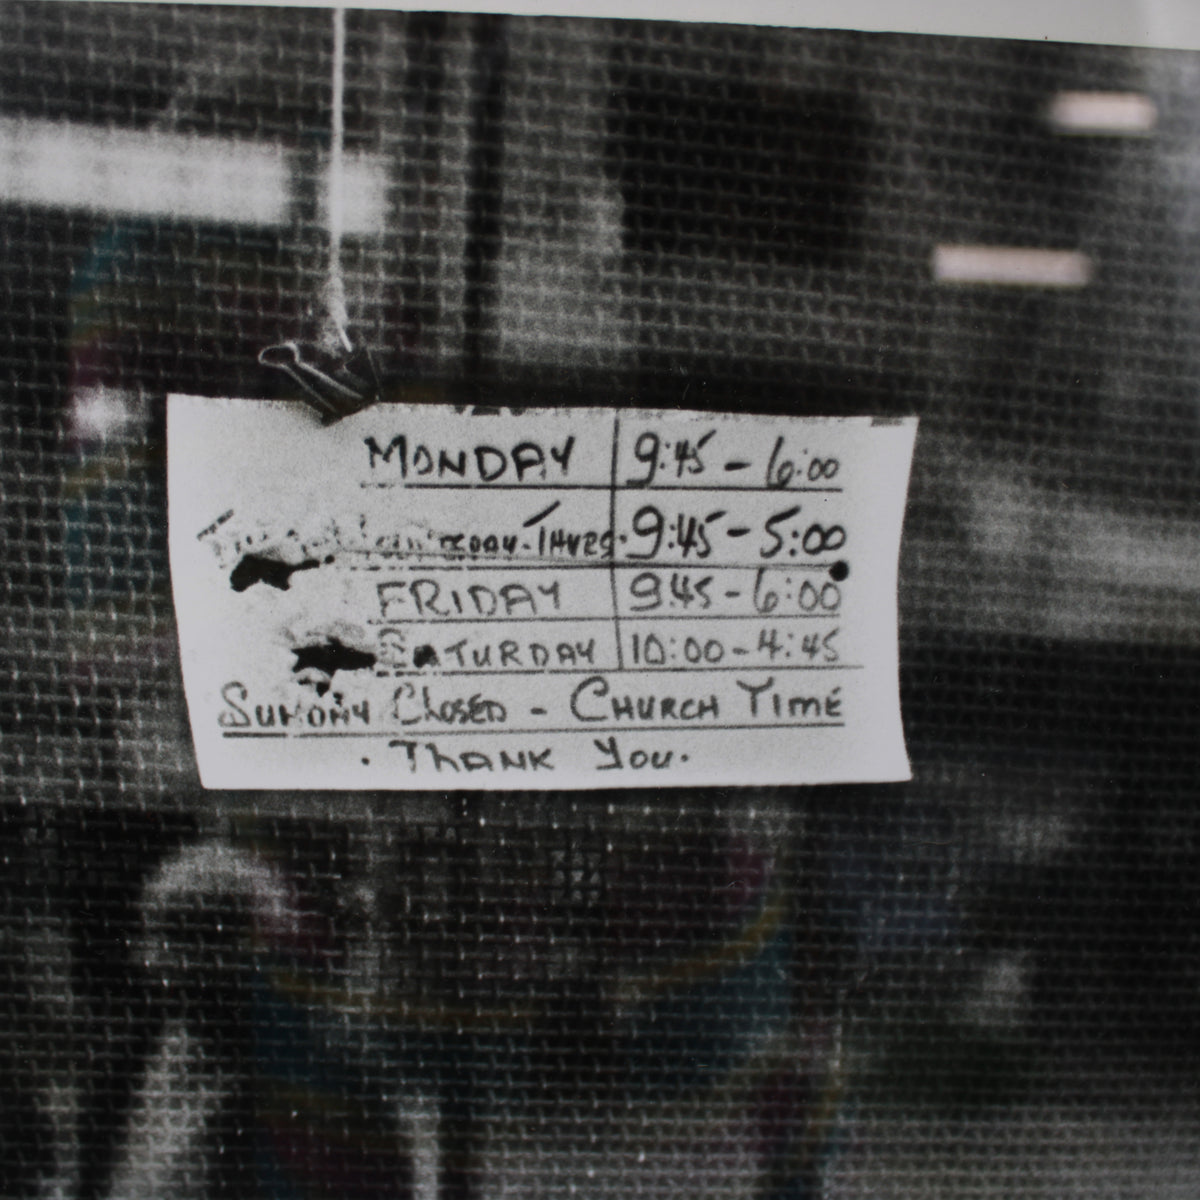 MONDAY 9:45 - 6:00
THURS. 9:45 - 5:00
FRIDAY 9:45 - 6:00
SATURDAY 10:00 - 4:45
SUNDAY CLOSED - CHURCH TIME
. THANK YOU .